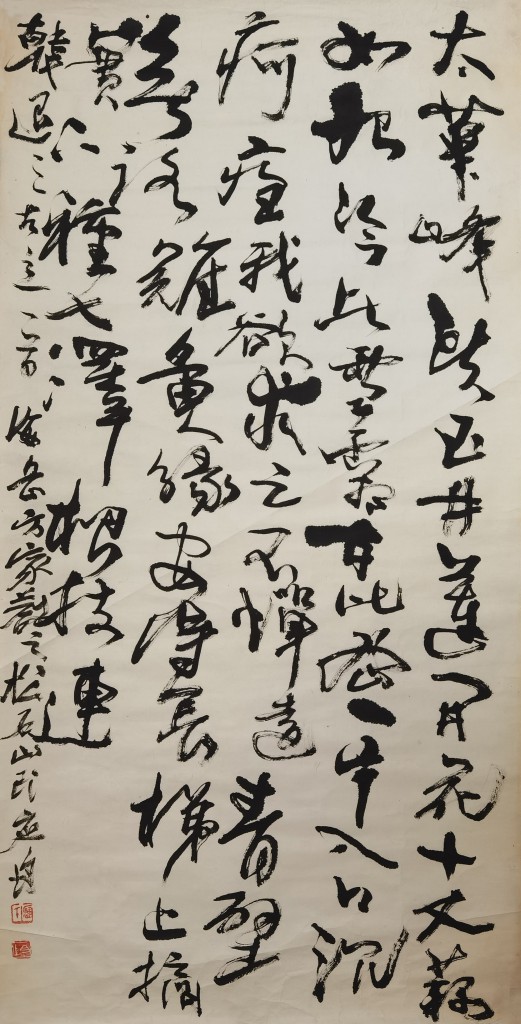 太華峰頭玉井蓮開花十丈藕
如船冷比雪霜甘比蜜一片入口沉
痾痊我欲求之不憚遠青壁
無路難夤緣安得長梯上摘
實下種七澤根枝連
韓退之古意一首 海岳方家教之 松石山